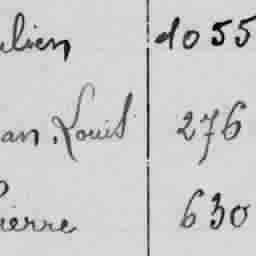 ulien 1055
an Louis 276
ierre 630